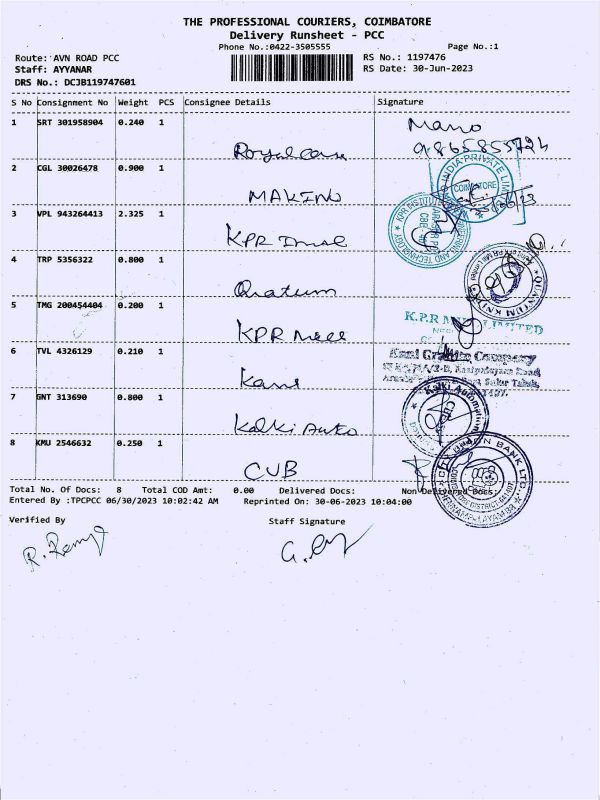 THE PROFESSIONAL COURIERS, COIMBATORE
Delivery Runsheet - PCC
Phone No.:0422-3505555
Page No.:1
Route: AVN ROAD PCC
RS No.: 1197476
Staff: AYYANAR
RS Date: 30-Jun-2023
DRS No.: DCJB119747601
S No Consignment No Weight PCS Consignee Details Signature
1 SRT 301958904 0.240 1
Mano
2 CGL 30026478 0.900 1
MAKINO
COIMBATORE
3 VPL 943264413 2.325 1
KPR
4 TRP 5356322 0.800 1
5 TMG 200454404 0.200 1
KPR
6 TVL 4326129 0.210 1
Kani Company
7 GNT 313690 0.800 1
Kalki Auto
8 KMU 2546632 0.250 1
CUB
Total No. Of Docs: 8 Total COD Amt: 0.00 Delivered Docs: Non Delivered Docs:
Entered By :TPCPCC 06/30/2023 10:02:42 AM Reprinted On: 30-06-2023 10:04:00
Verified By Staff Signature